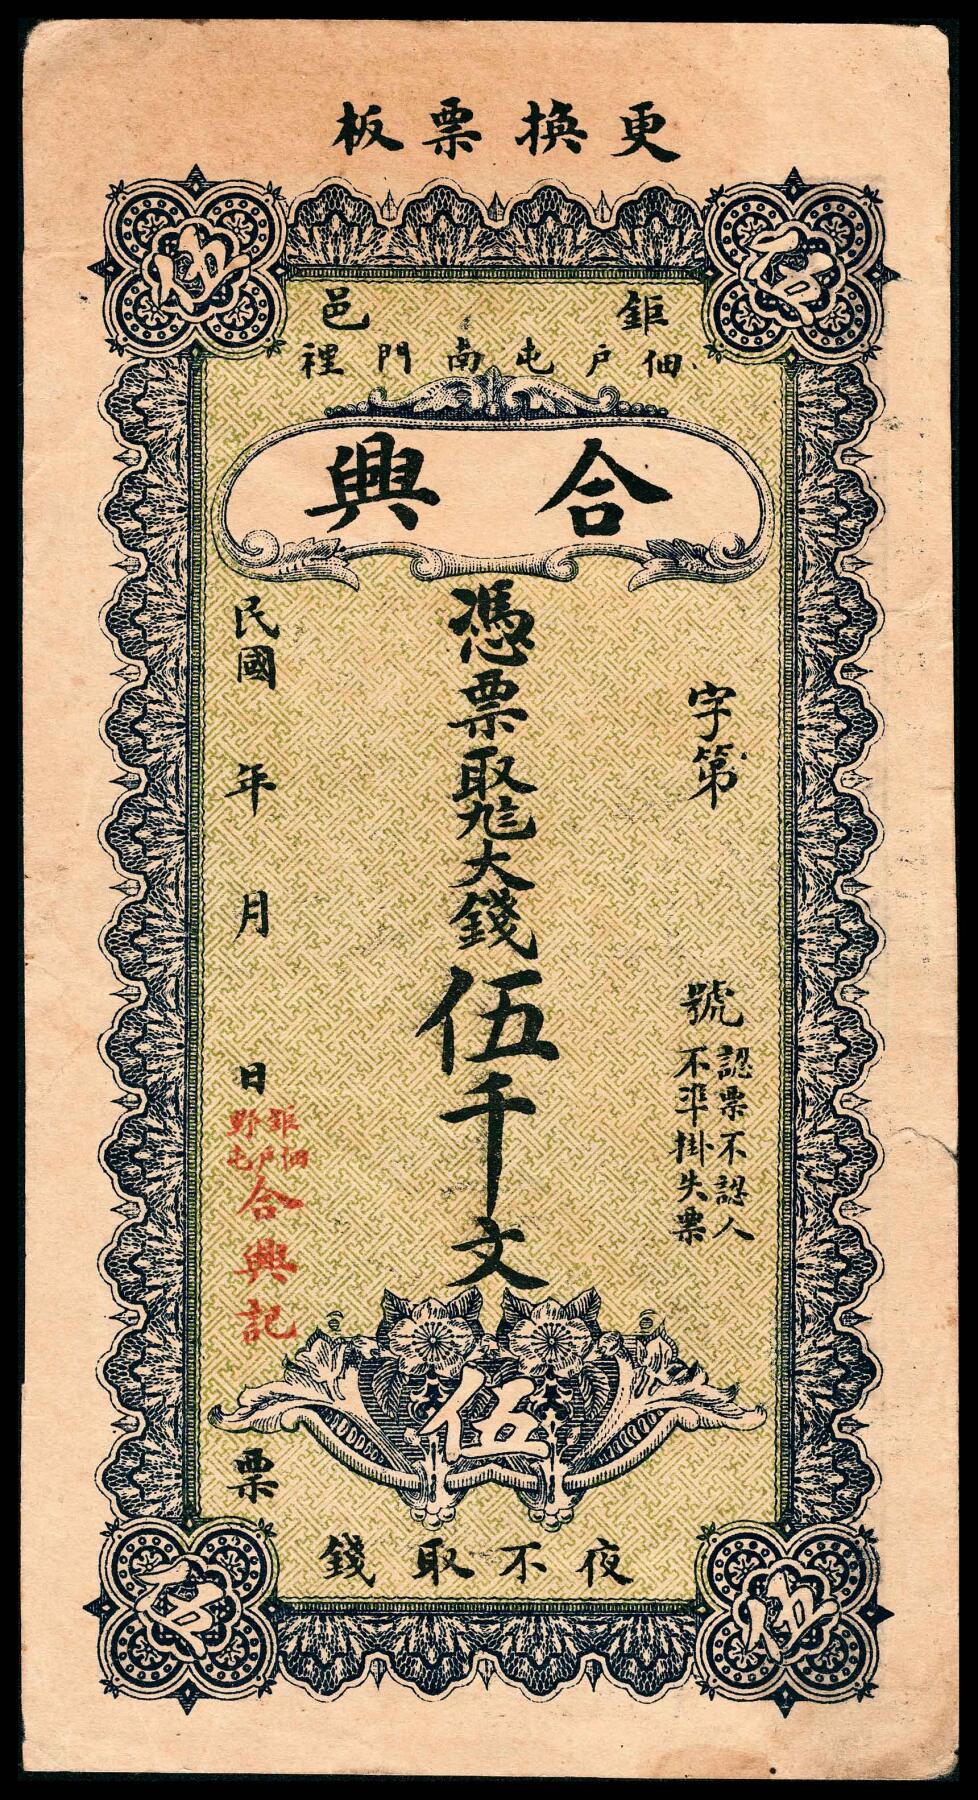 更換票板
伍
伍
鉅邑
佃戶屯南門裡
合興
字第 號
認票不認人
不準掛失票
憑票取大錢伍千文
民國 年 月 日 票
鉅野
佃戶屯
合興記
伍
夜不取錢
伍
伍